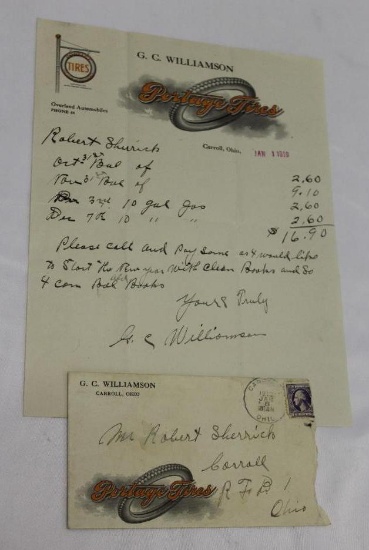 G. C. WILLIAMSON
TIRES
Portage Tires
Overland Automobiles
PHONE
Carroll, Ohio, JAN 1 1919
Robert Sherrick
Oct 31st Bal of 2.60
Nov 31st Bal of 9.10
Dec 3rd 10 gal gas 2.60
Dec 7th 10 " " 2.60
$ 16.90
Please call and pay same as I would like
to Start the New year with Clean Books and So
I can Bal Books
Yours Truly
G. C. Williamson
G. C. WILLIAMSON
CARROLL, OHIO
Mr Robert Sherrick
Carroll
Portage Tires
R F D 1
Ohio